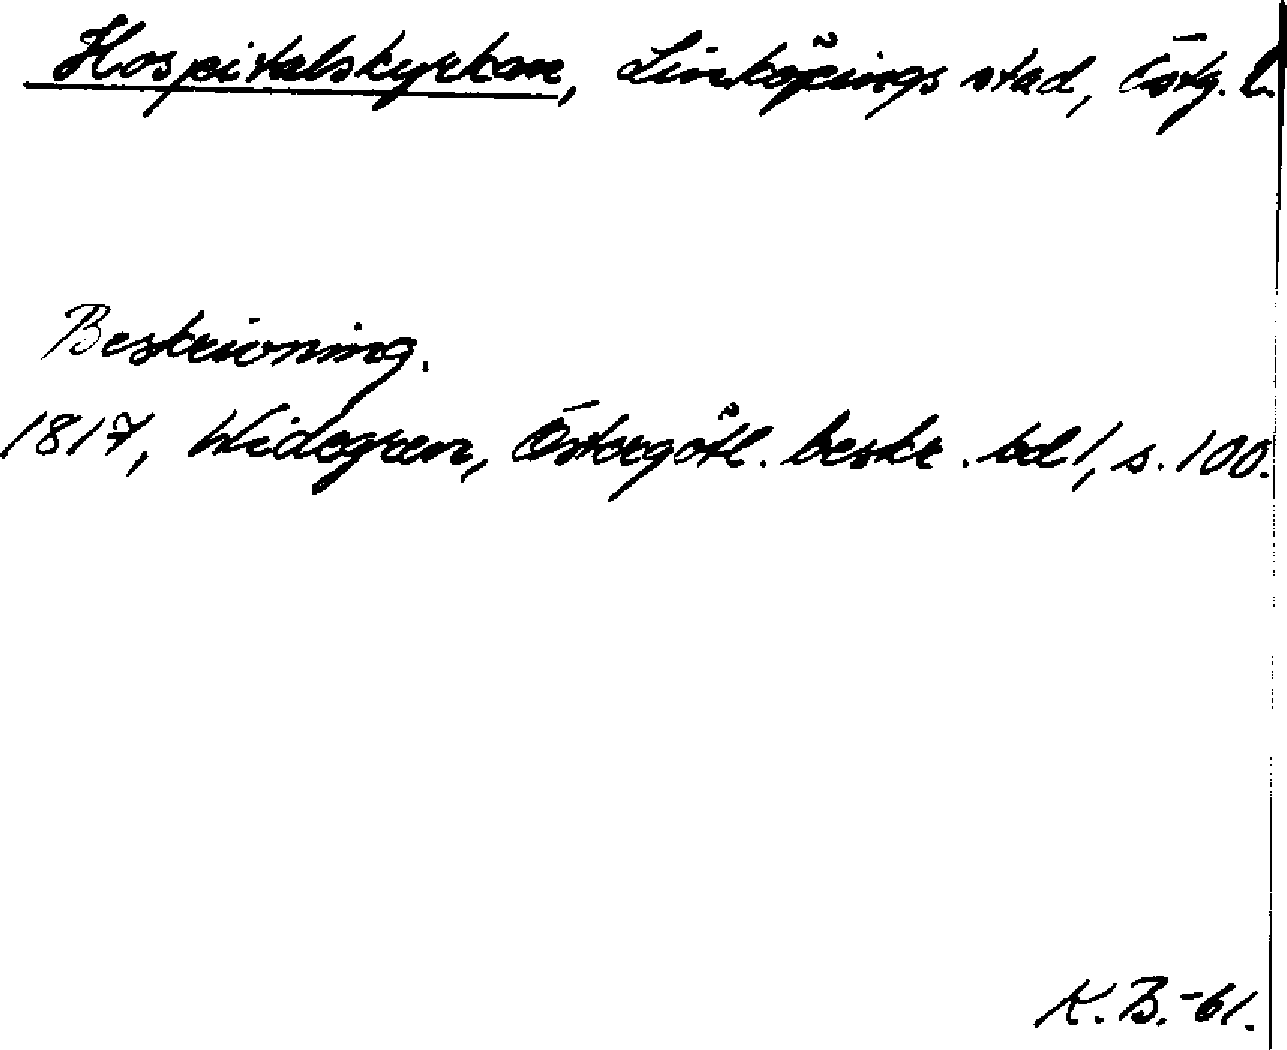 Hospitalskyrkan, Linköpings stad, Östg. l.
Beskrivning.
1817, Widegren, Östergötl. beskr. bd 1, s. 100.
K. B. -61.